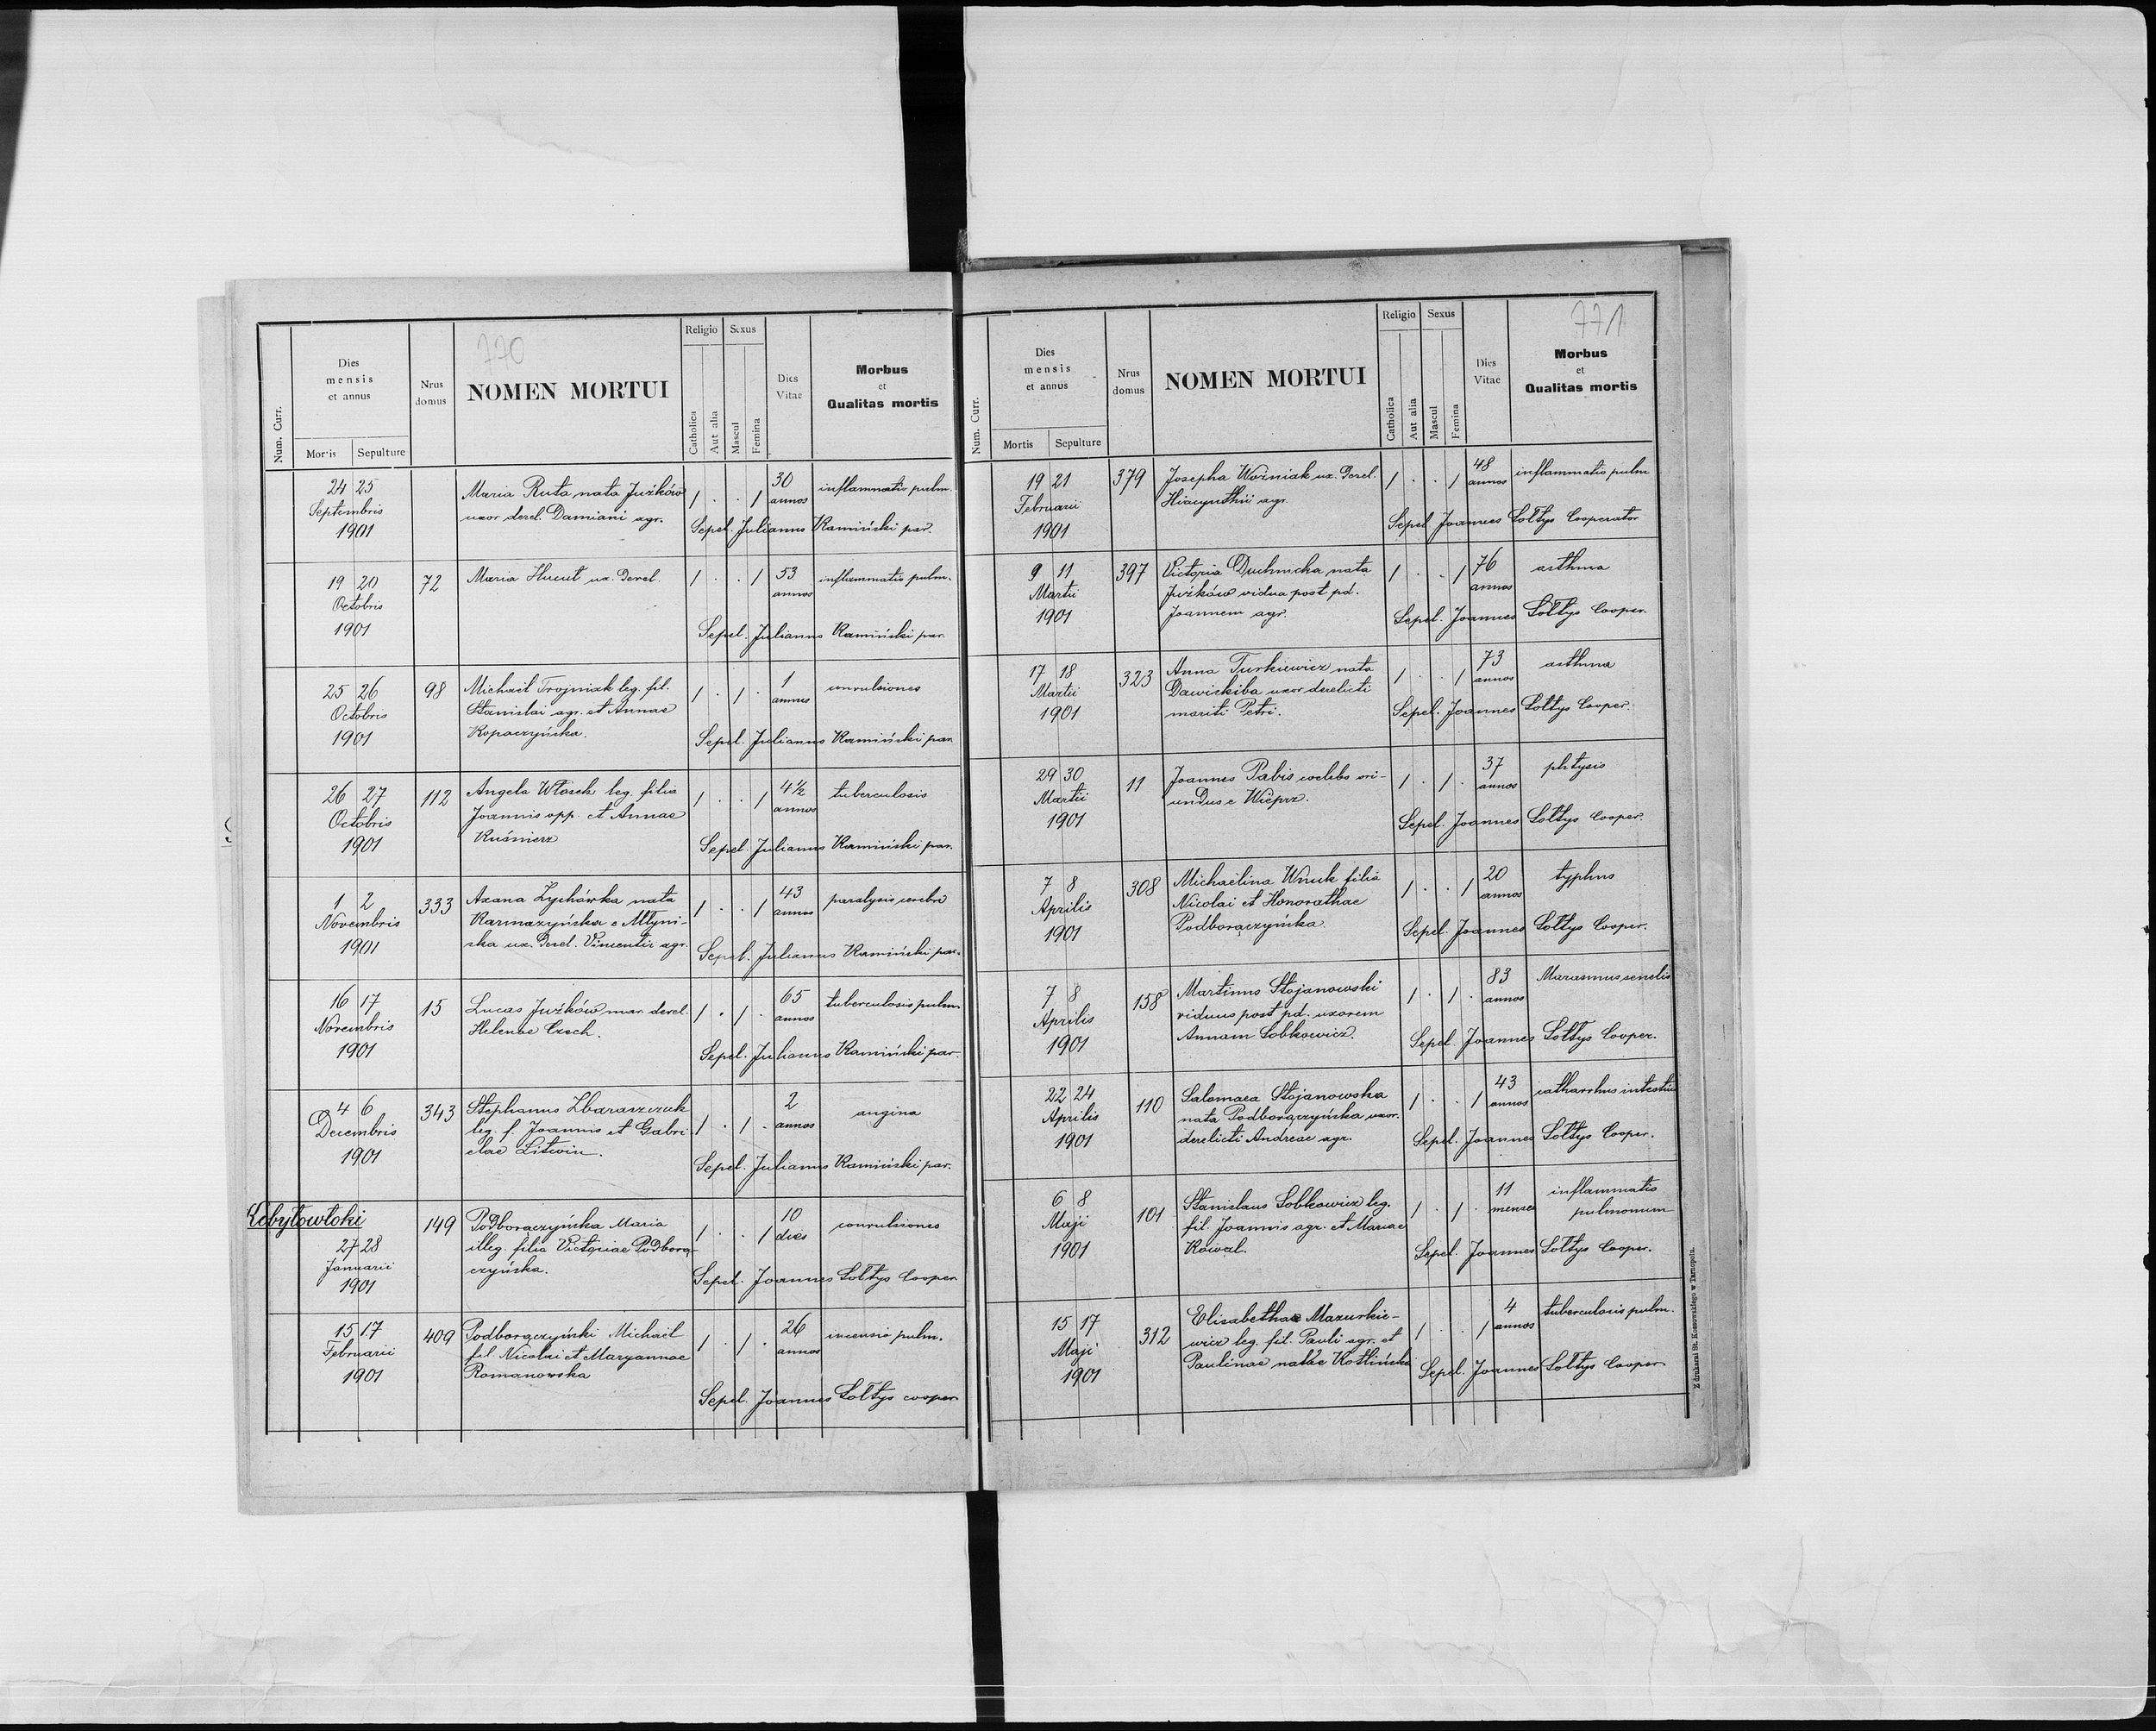 770
Num. Curr.
Dies mensis et annus
Mortis Sepulture
Nrus domus
NOMEN MORTUI
Religio Sexus
Catholica
Aut alia
Mascul
Femina
Dies Vitae
Morbus et Qualitas mortis
24 25 Maria Ruta nata Juźków 1 . . 1 30 annos inflammatio pulm.
Septembris uxor derel. Damiani agr.
1901 Sepel. Julianus Kamiński par.
19 20 72 Maria Hucuł ux. derel. 1 . . 1 53 annos inflammatio pulm.
Octobris
1901 Sepel. Julianus Kamiński par.
25 26 98 Michaël Trojniak leg. fil. 1 . 1 . 1 annus convulsiones
Octobris Stanislai agr. et Annae
1901 Kopaczyńska. Sepel. Julianus Kamiński par.
26 27 112 Angela Włosek leg. filia 1 . . 1 4½ annos tuberculosis
Octobris Joannis opp. et Annae
1901 Kuśnierz Sepel. Julianus Kamiński par.
1 2 333 Axana Zychórka nata 1 . . 1 43 annos paralysis cerebri
Novembris Karmazyńska e Młyni-
1901 ska ux. derel. Vincentii agr. Sepel. Julianus Kamiński par.
16 17 15 Lucas Juźków mar. derel. 1 . 1 . 65 annos tuberculosis pulm.
Novembris Helenae Czech.
1901 Sepel. Julianus Kamiński par.
4 6 343 Stephanus Zbaraszczuk 1 . 1 . 2 annos angina
Decembris leg. f. Joannis et Gabri-
1901 elae Litwin. Sepel. Julianus Kamiński par.
149 Podborączyńska Maria 1 . . 1 10 dies convulsiones
27 28 illeg. filia Victoriae Podborą-
Januarii czyńska.
1901 Sepel. Joannes Sołtys Cooper
15 17 409 Podborączyński Michaël 1 . 1 . 26 annos incensio pulm.
Februarii fil Nicolai et Maryannae
1901 Romanowska
Sepel. Joannes Sołtys cooper
771
Num. Curr.
Dies mensis et annus
Mortis Sepulture
Nrus domus
NOMEN MORTUI
Religio Sexus
Catholica
Aut alia
Mascul
Femina
Dies Vitae
Morbus et Qualitas mortis
19 21 379 Josepha Woźniak ux. derel. 1 . . 1 48 annos inflammatio pulm
Februarii Hiacynthii agr.
1901 Sepel Joannes Sołtys Cooperator
9 11 397 Victoria Duchnicka nata 1 . . 1 76 annos asthma
Martii Juźków vidua post pd.
1901 Joannem agr. Sepel. Joannes Sołtys Cooper.
17 18 323 Anna Turkiewicz nata 1 . . 1 73 annos asthma
Martii Dawiskiba uxor derelicti
1901 mariti Petri. Sepel. Joannes Sołtys Cooper.
29 30 11 Joannes Pabis coelebs ori- 1 . 1 . 37 annos phtysis
Martii undus e Wieprz.
1901 Sepel. Joannes Sołtys Cooper.
7 8 308 Michaëlina Wnuk filia 1 . . 1 20 annos typhus
Aprilis Nicolai et Honorathae
1901 Podborączyńska. Sepel Joannes Sołtys Cooper.
7 8 158 Martinus Stojanowski 1 . 1 . 83 annos Marasmus senelis
Aprilis viduus post pd. uxorem
1901 Annam Sobkowicz. Sepel. Joannes Sołtys Cooper.
22 24 110 Salomaea Stojanowska 1 . . 1 43 annos catharrhus intestin
Aprilis nata Podborączyńska uxor.
1901 derelicti Andreae agr. Sepel. Joannes Sołtys Cooper.
6 8 101 Stanislaus Sobkowicz leg. 1 . 1 . 11 menses inflammatio
Maji fil. Joannis agr. et Mariae pulmonum
1901 Kowal. Sepel. Joannes Sołtys Cooper.
15 17 312 Elisabethae Mazurkie- 1 . . 1 4 annos tuberculosis pulm.
Maji wicz leg. fil. Pauli agr. et
1901 Paulinae natae Kotlińska Sepel. Joannes Sołtys Cooper
Z drukarni St. Kossowskiego w Tarnopolu.